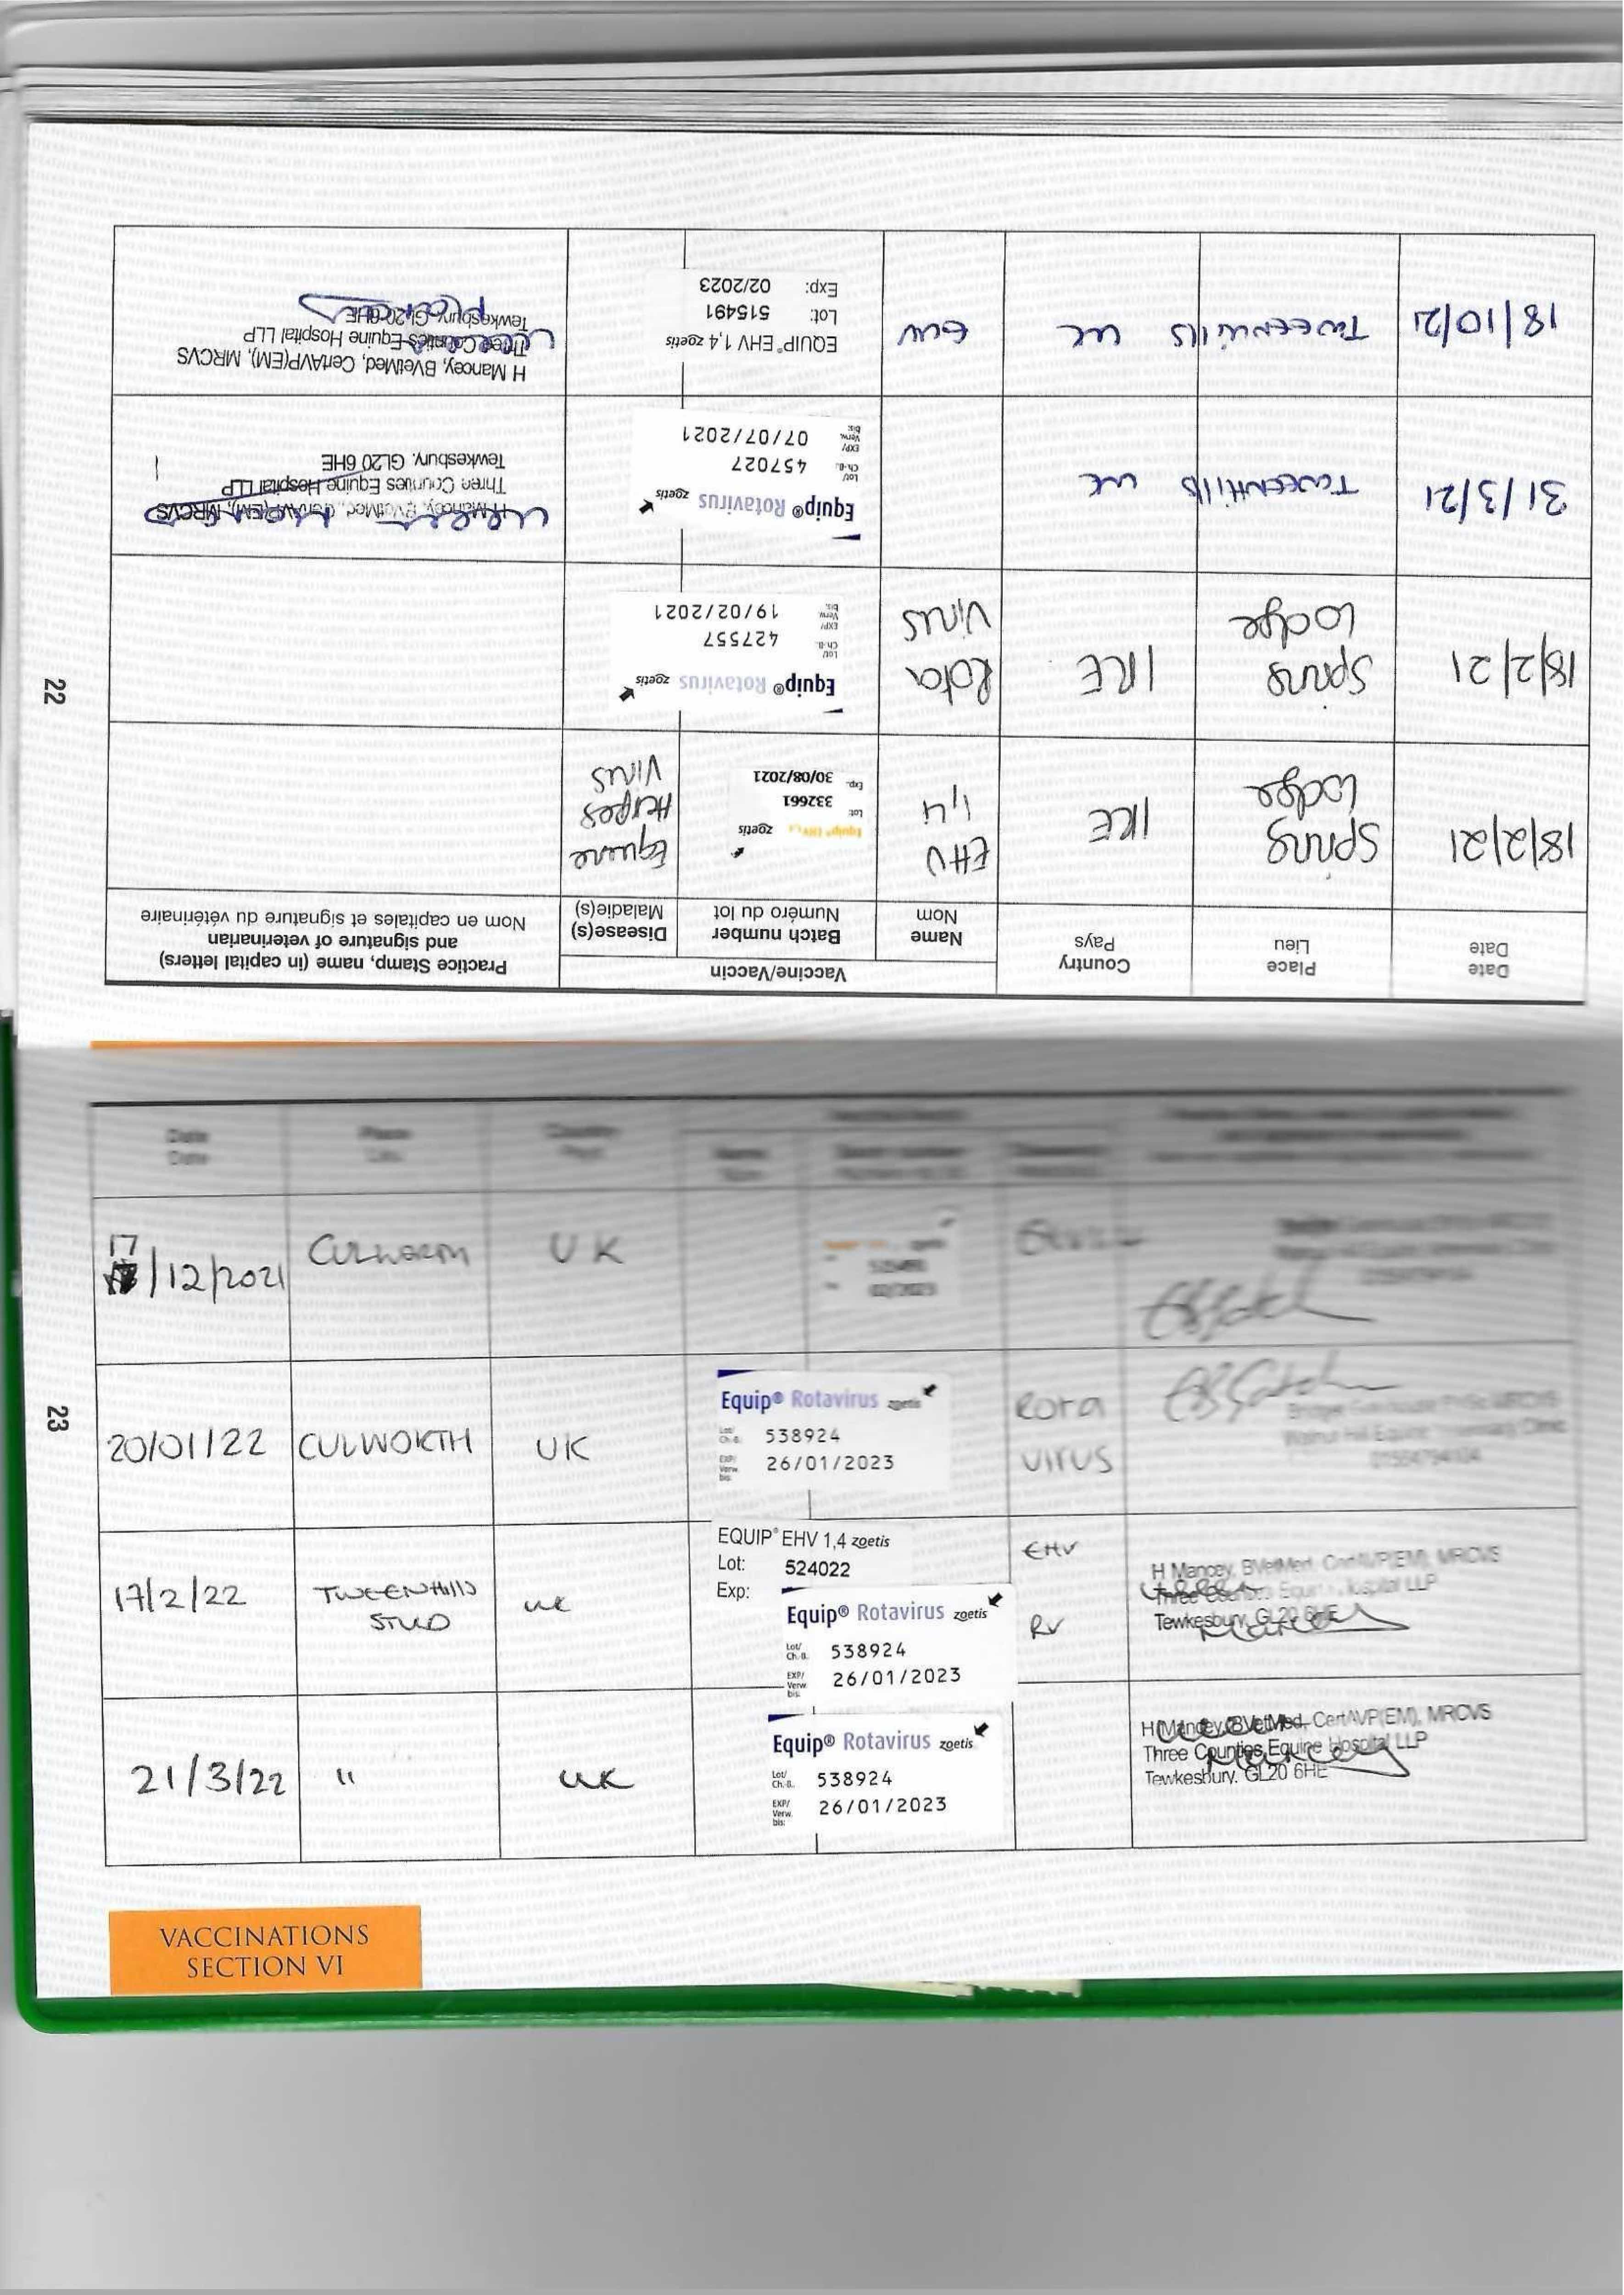 22
Date
Date
Place
Lieu
Country
Pays
Vaccine/Vaccin
Name
Nom
Batch number
Numéro du lot
Disease(s)
Maladie(s)
Practice Stamp, name (in capital letters)
and signature of veterinarian
Nom en capitales et signature du vétérinaire
18/2/21
Spring
Lodge
IRE
EHV
1,4
Equip® EHV 1,4 zoetis
Lot: 332661
Exp. 30/08/2021
Equine
Herpes
Virus
18/2/21
Spring
Lodge
IRE
Rota
Virus
Equip® Rotavirus zoetis
Lot/
Ch.-B. 427557
EXP/
Verw. 19/02/2021
bis:
31/3/21
TWEENHILLS
UK
Equip® Rotavirus zoetis
Lot/
Ch.-B. 457027
EXP/
Verw. 07/07/2021
bis:
H Mancey, BVetMed, CertAVP(EM), MRCVS
Three Counties Equine Hospital LLP
Tewkesbury. GL20 6HE
18/10/21
TWEENHILLS
UK
EHV
EQUIP® EHV 1,4 zoetis
Lot: 515491
Exp: 02/2023
H Mancey, BVetMed, CertAVP(EM), MRCVS
Three Counties Equine Hospital LLP
Tewkesbury. GL20 6HE
23
Date
Date
Place
Lieu
Country
Pays
Name
Nom
17/12/2021
CULWORTH
UK
02/2023
20/01/22
CULWORTH
UK
Equip® Rotavirus zoetis
Lot/
Ch.-B. 538924
EXP/
Verw. 26/01/2023
bis:
Rota
VIRUS
Walnut Hill Equine Veterinary Clinic
17/2/22
TWEENHILLS
STUD
UK
EQUIP® EHV 1,4 zoetis
Lot: 524022
Exp:
Equip® Rotavirus zoetis
Lot/
Ch.-B. 538924
EXP/
Verw. 26/01/2023
bis:
EHV
RV
H Mancey, BVetMed, CertAVP(EM), MRCVS
Three Counties Equine Hospital LLP
Tewkesbury. GL20 6HE
21/3/22
"
UK
Equip® Rotavirus zoetis
Lot/
Ch.-B. 538924
EXP/
Verw. 26/01/2023
bis:
H Mancey, BVetMed, CertAVP(EM), MRCVS
Three Counties Equine Hospital LLP
Tewkesbury. GL20 6HE
VACCINATIONS
SECTION VI